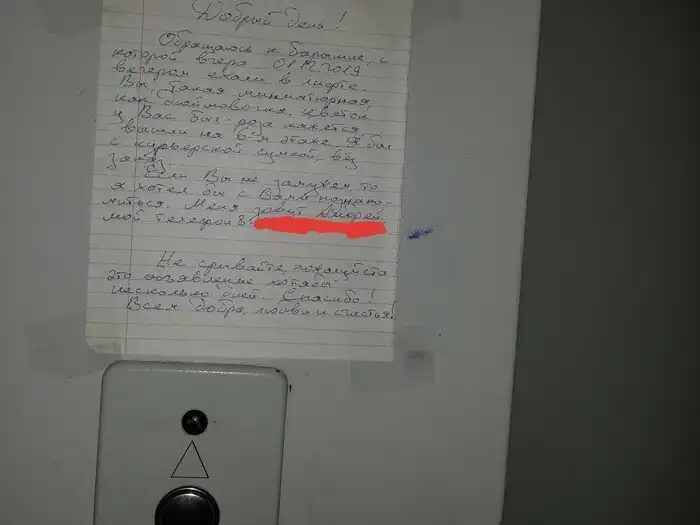 Добрый день!
Обращаюсь к барышне, с
которой вчера 01.12.2019
вечером ехали в лифте.
Вы, такая миниатюрная,
как дюймовочка, цветок
у Вас был - роза кажется
вышли на 6-м этаже. Я был
с курьерской сумкой, вёз
заказ.
Если Вы не замужем то
я хотел бы с Вами познако-
миться. Меня зовут Андрей
мой телефон 8
Не срывайте, пожалуйста
это объявление хотябы
несколько дней. Спасибо!
Всем добра, любви и счастья!